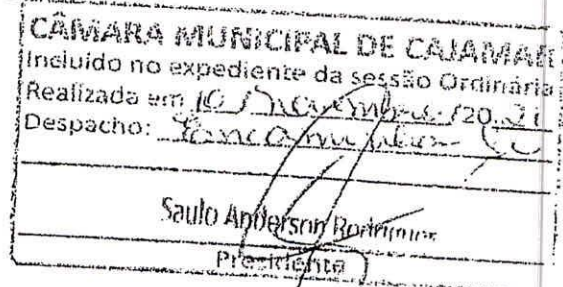 CÂMARA MUNICIPAL DE CAJAMAR
Incluido no expediente da sessão Ordinária
Realizada em 10 / novembro / 20 21
Despacho: Encaminhar-se
Saulo Anderson Rodrigues
Presidente